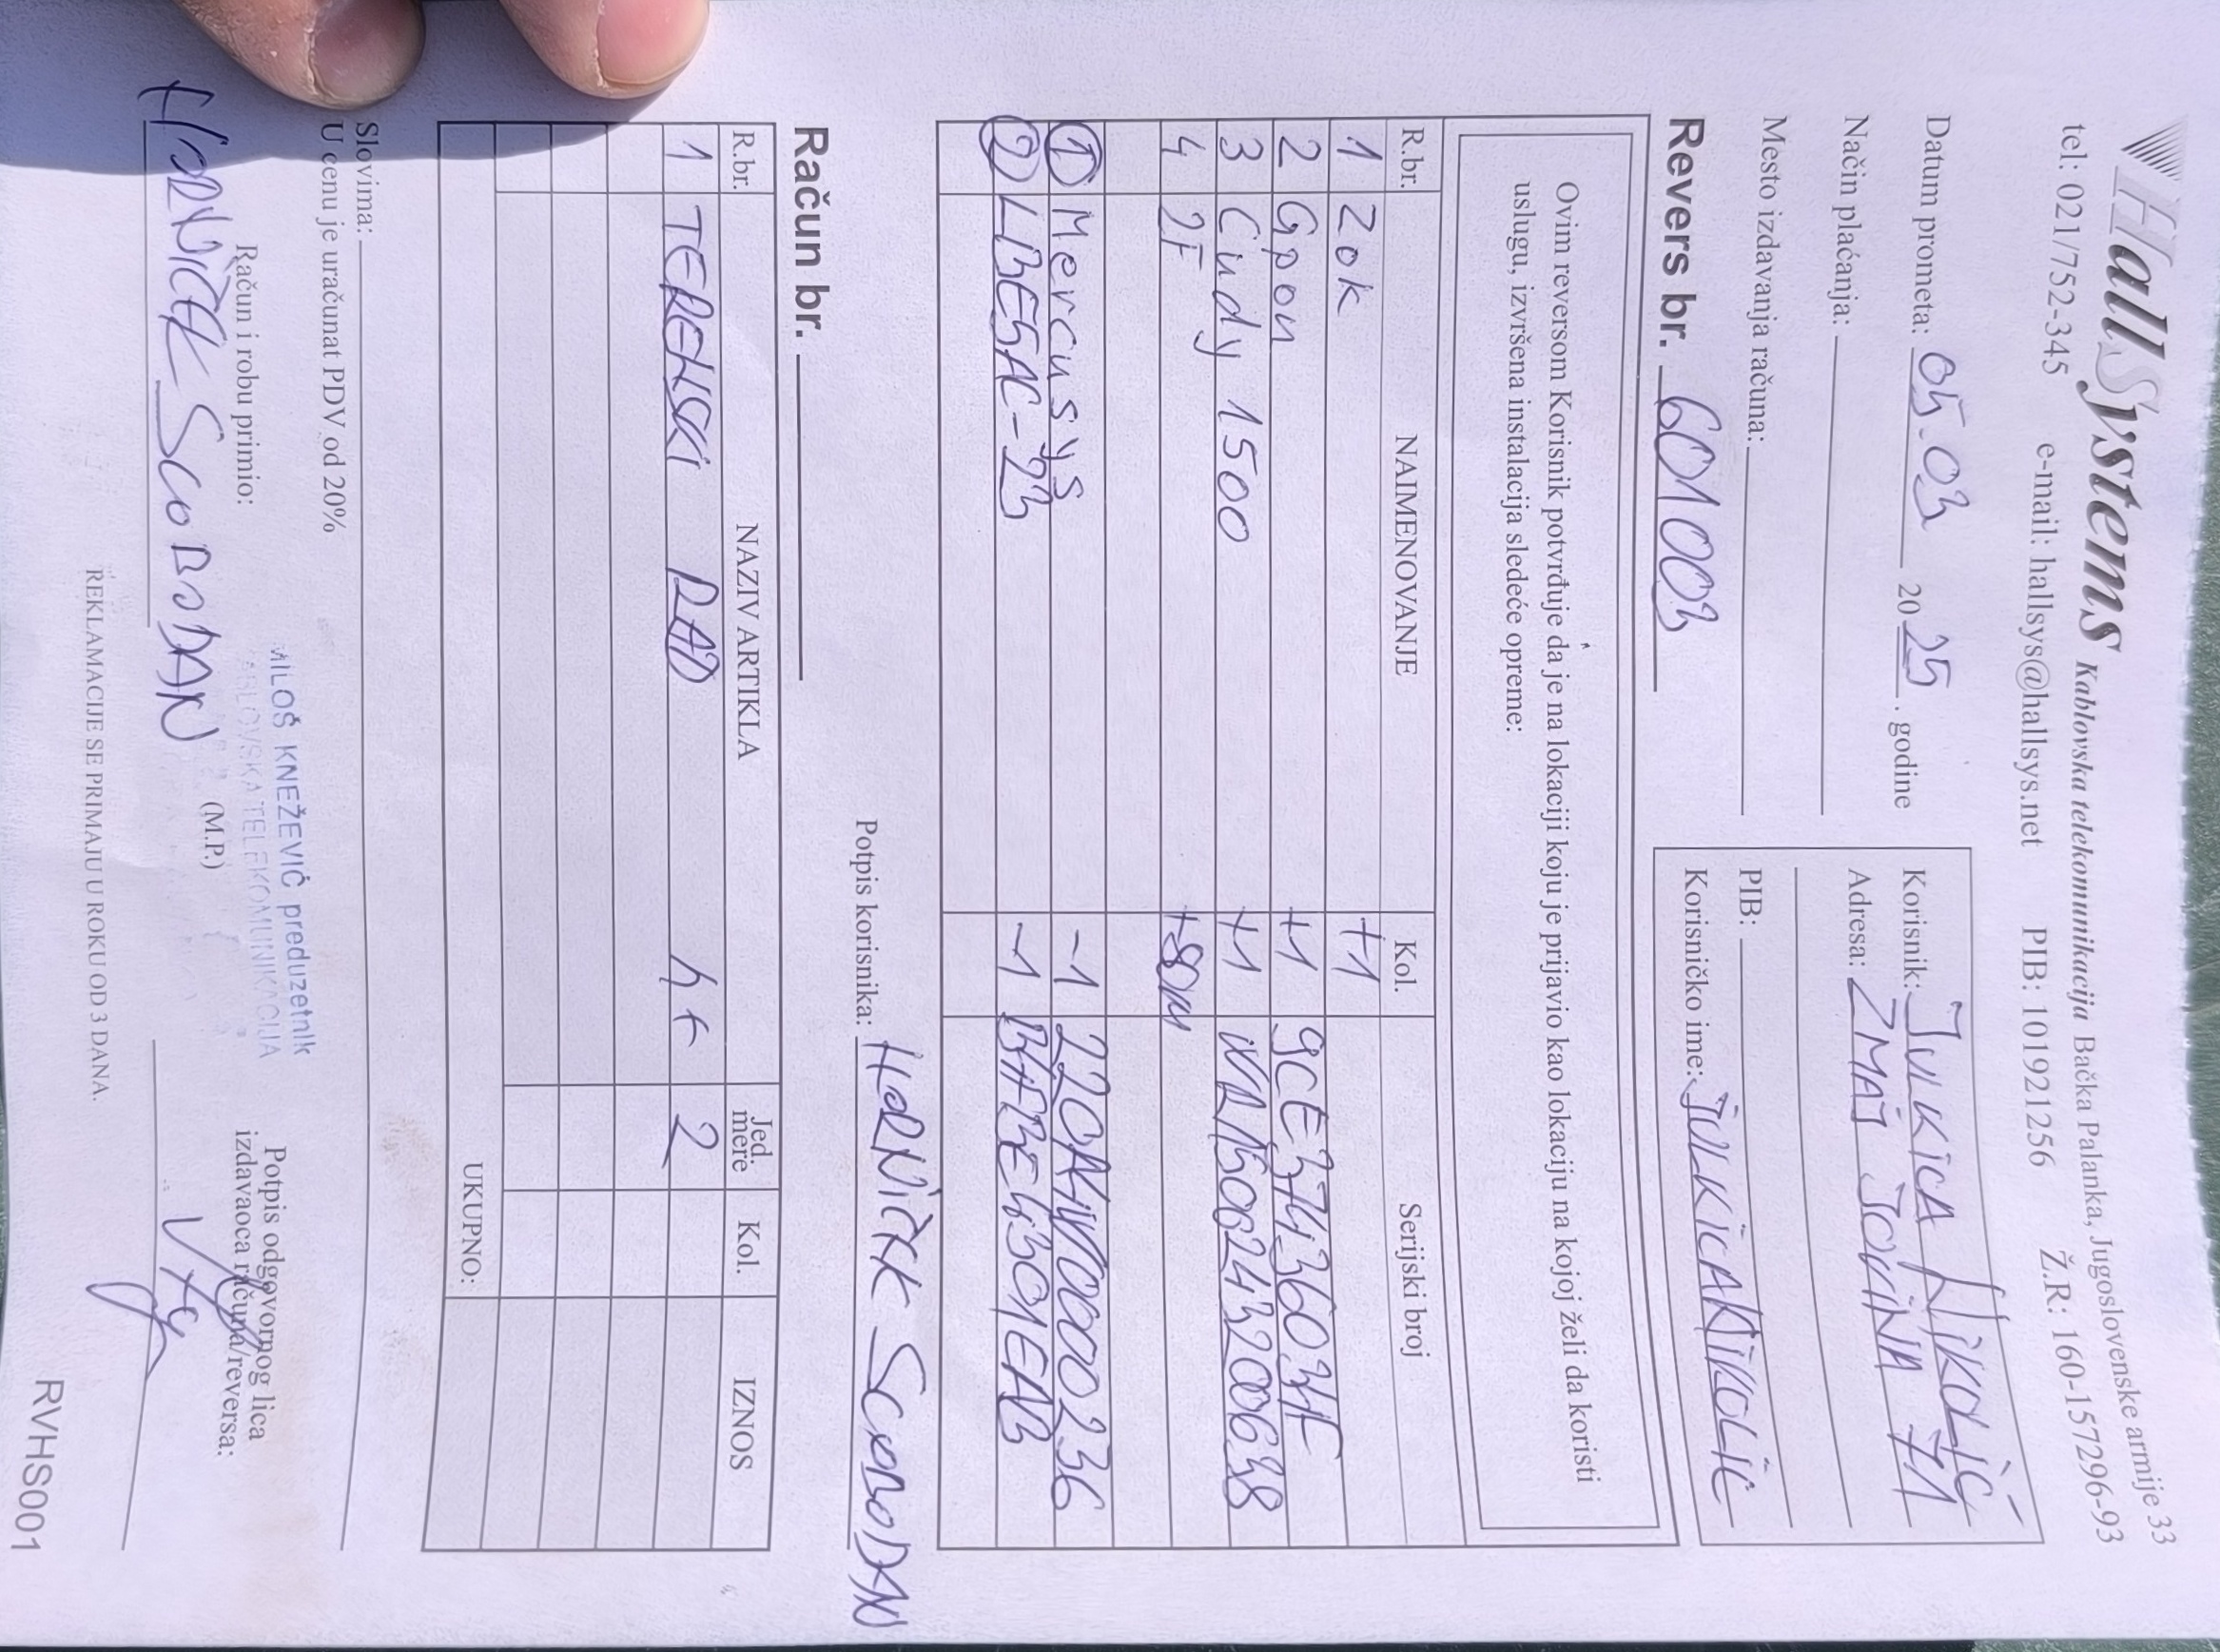 HallSystems Kablovska telekomunikacija Bačka Palanka, Jugoslovenske armije 33
tel: 021/752-345 e-mail: hallsys@hallsys.net PIB: 101921256 Ž.R: 160-157296-93
Datum prometa: 05.03 2025. godine
Način plaćanja:
Mesto izdavanja računa:
Korisnik: JULKICA NIKOLIĆ
Adresa: ZMAJ JOVINA 71
PIB:
Korisničko ime: JULKICANIKOLIĆ
Revers br. 601003
Ovim reversom Korisnik potvrđuje da je na lokaciji koju je prijavio kao lokaciju na kojoj želi da koristi
uslugu, izvršena instalacija sledeće opreme:
R.br. NAIMENOVANJE Kol. Serijski broj
1 Zok +1
2 Gpon +1 9CE374360
3 Cudy 1500 +1
4 2F +80m
1 Mercusys -1
2 LBE5AC-23 -1
Potpis korisnika: HORNIČEK SLOBODAN
Račun br.
R.br. NAZIV ARTIKLA Jed. mere Kol. IZNOS
1 TERENSKI RAD 2
UKUPNO:
Slovima:
U cenu je uračunat PDV od 20%
Račun i robu primio:
HORNIČEK SLOBODAN
MILOŠ KNEŽEVIĆ preduzetnik
KABLOVSKA TELEKOMUNIKACIJA
(M.P.)
Potpis odgovornog lica
izdavaoca računa/reversa:
REKLAMACIJE SE PRIMAJU U ROKU OD 3 DANA.
RVHS001